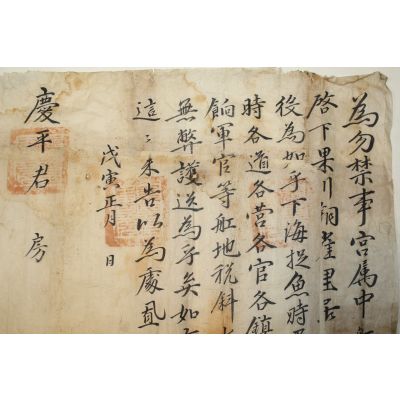 為勿禁事宮属中
啓下果川銅雀里居
後為如乎下海捉魚時
時各道各营各官各鎮
餉軍官等舡地税斜
無弊護送為乎矣如
這〻来告以為處置
戊寅正月 日
慶平君 房